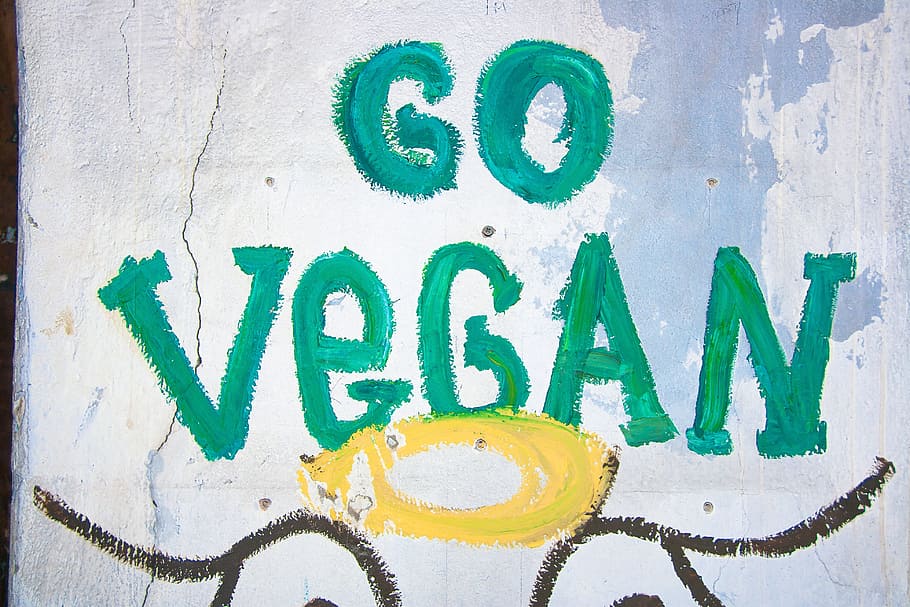 GO
VeGAN